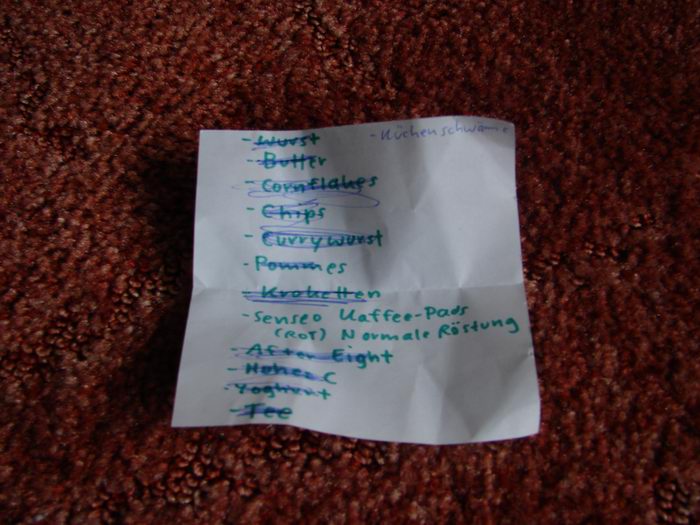 - Wurst
- Küchenschwämme
- Butter
- Cornflakes
- Chips
- Currywurst
- Pommes
- Kroketten
- Senseo Kaffee-Pads
(ROT) Normale Röstung
- After Eight
- Hohes C
- Yoghurt
- Tee